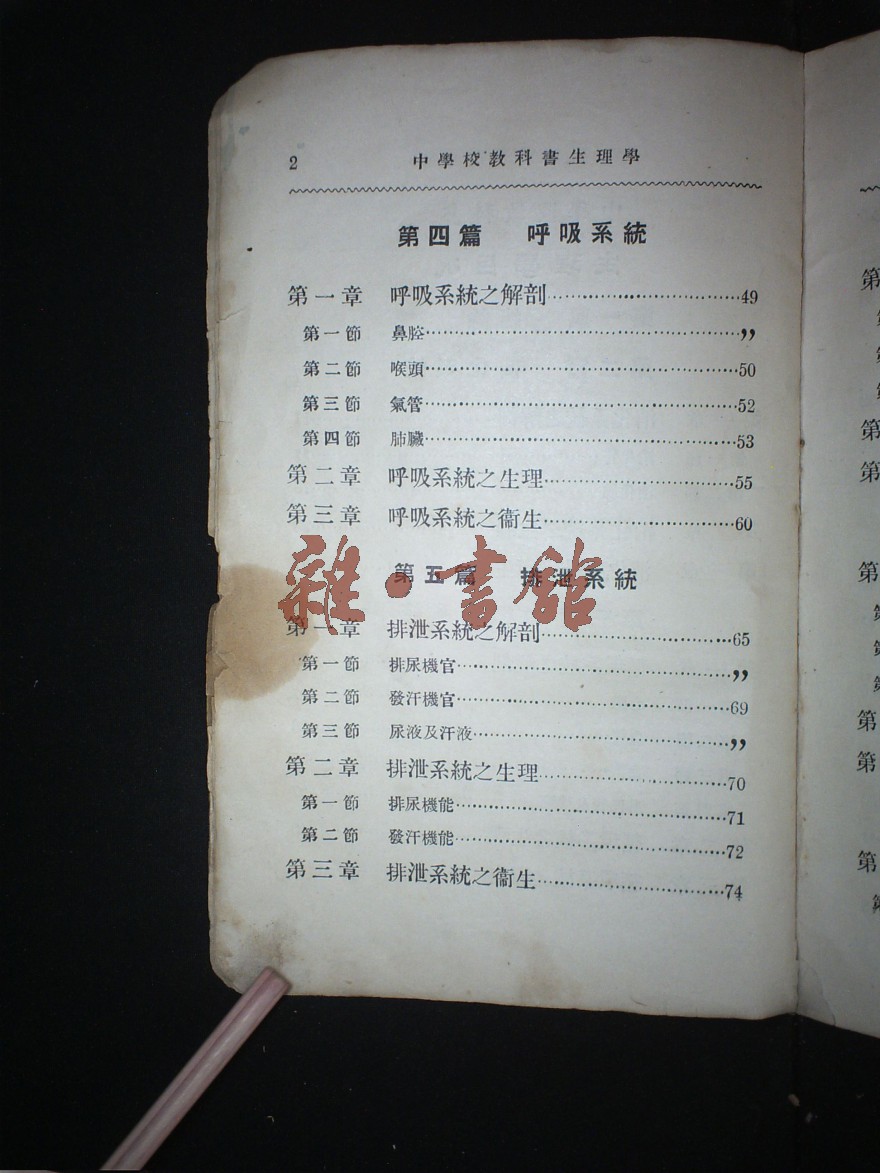 2 中學校教科書生理學
第四篇 呼吸系統
第一章 呼吸系統之解剖……49
第一節 鼻腔……”
第二節 喉頭……50
第三節 氣管……52
第四節 肺臟……53
第二章 呼吸系統之生理……55
第三章 呼吸系統之衞生……60
第五篇 排泄系統
雜·書館
第一章 排泄系統之解剖……65
第一節 排尿機官……”
第二節 發汗機官……69
第三節 尿液及汗液……”
第二章 排泄系統之生理……70
第一節 排尿機能……71
第二節 發汗機能……72
第三章 排泄系統之衞生……74